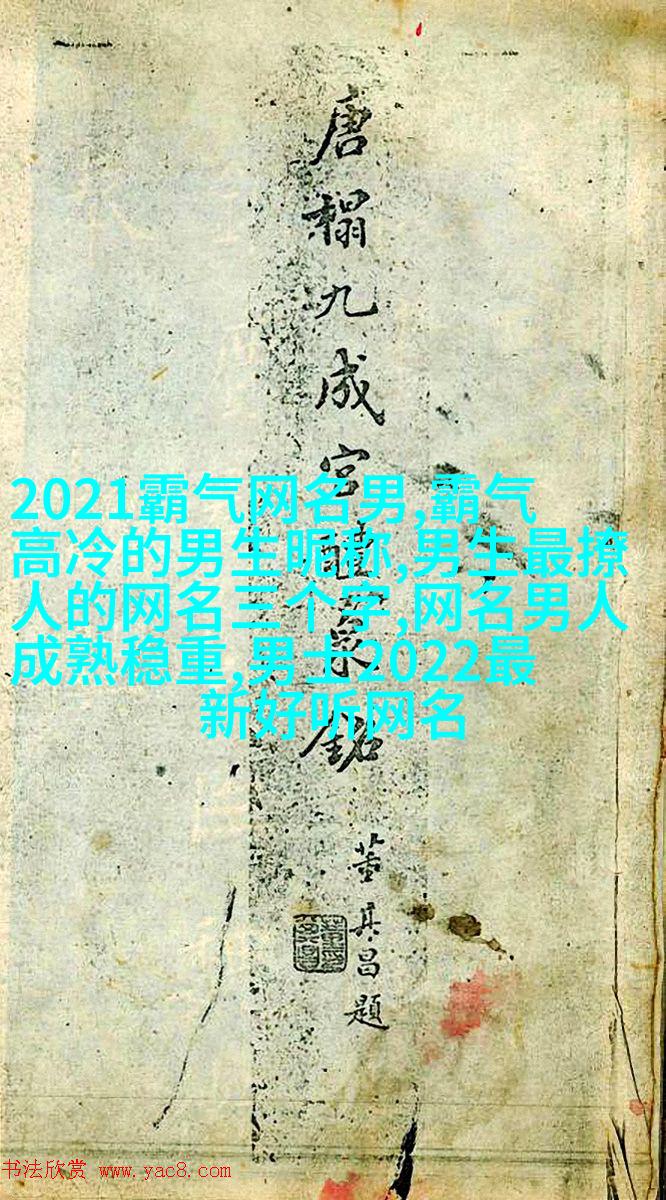 唐榻九成宮醴泉銘
董其昌題
2021霸气网名男,霸气
高冷的男生昵称,男生最撩
人的网名三个字,网名男人
成熟稳重,男士2022最
新好听网名
书法欣赏 www.yac8.com